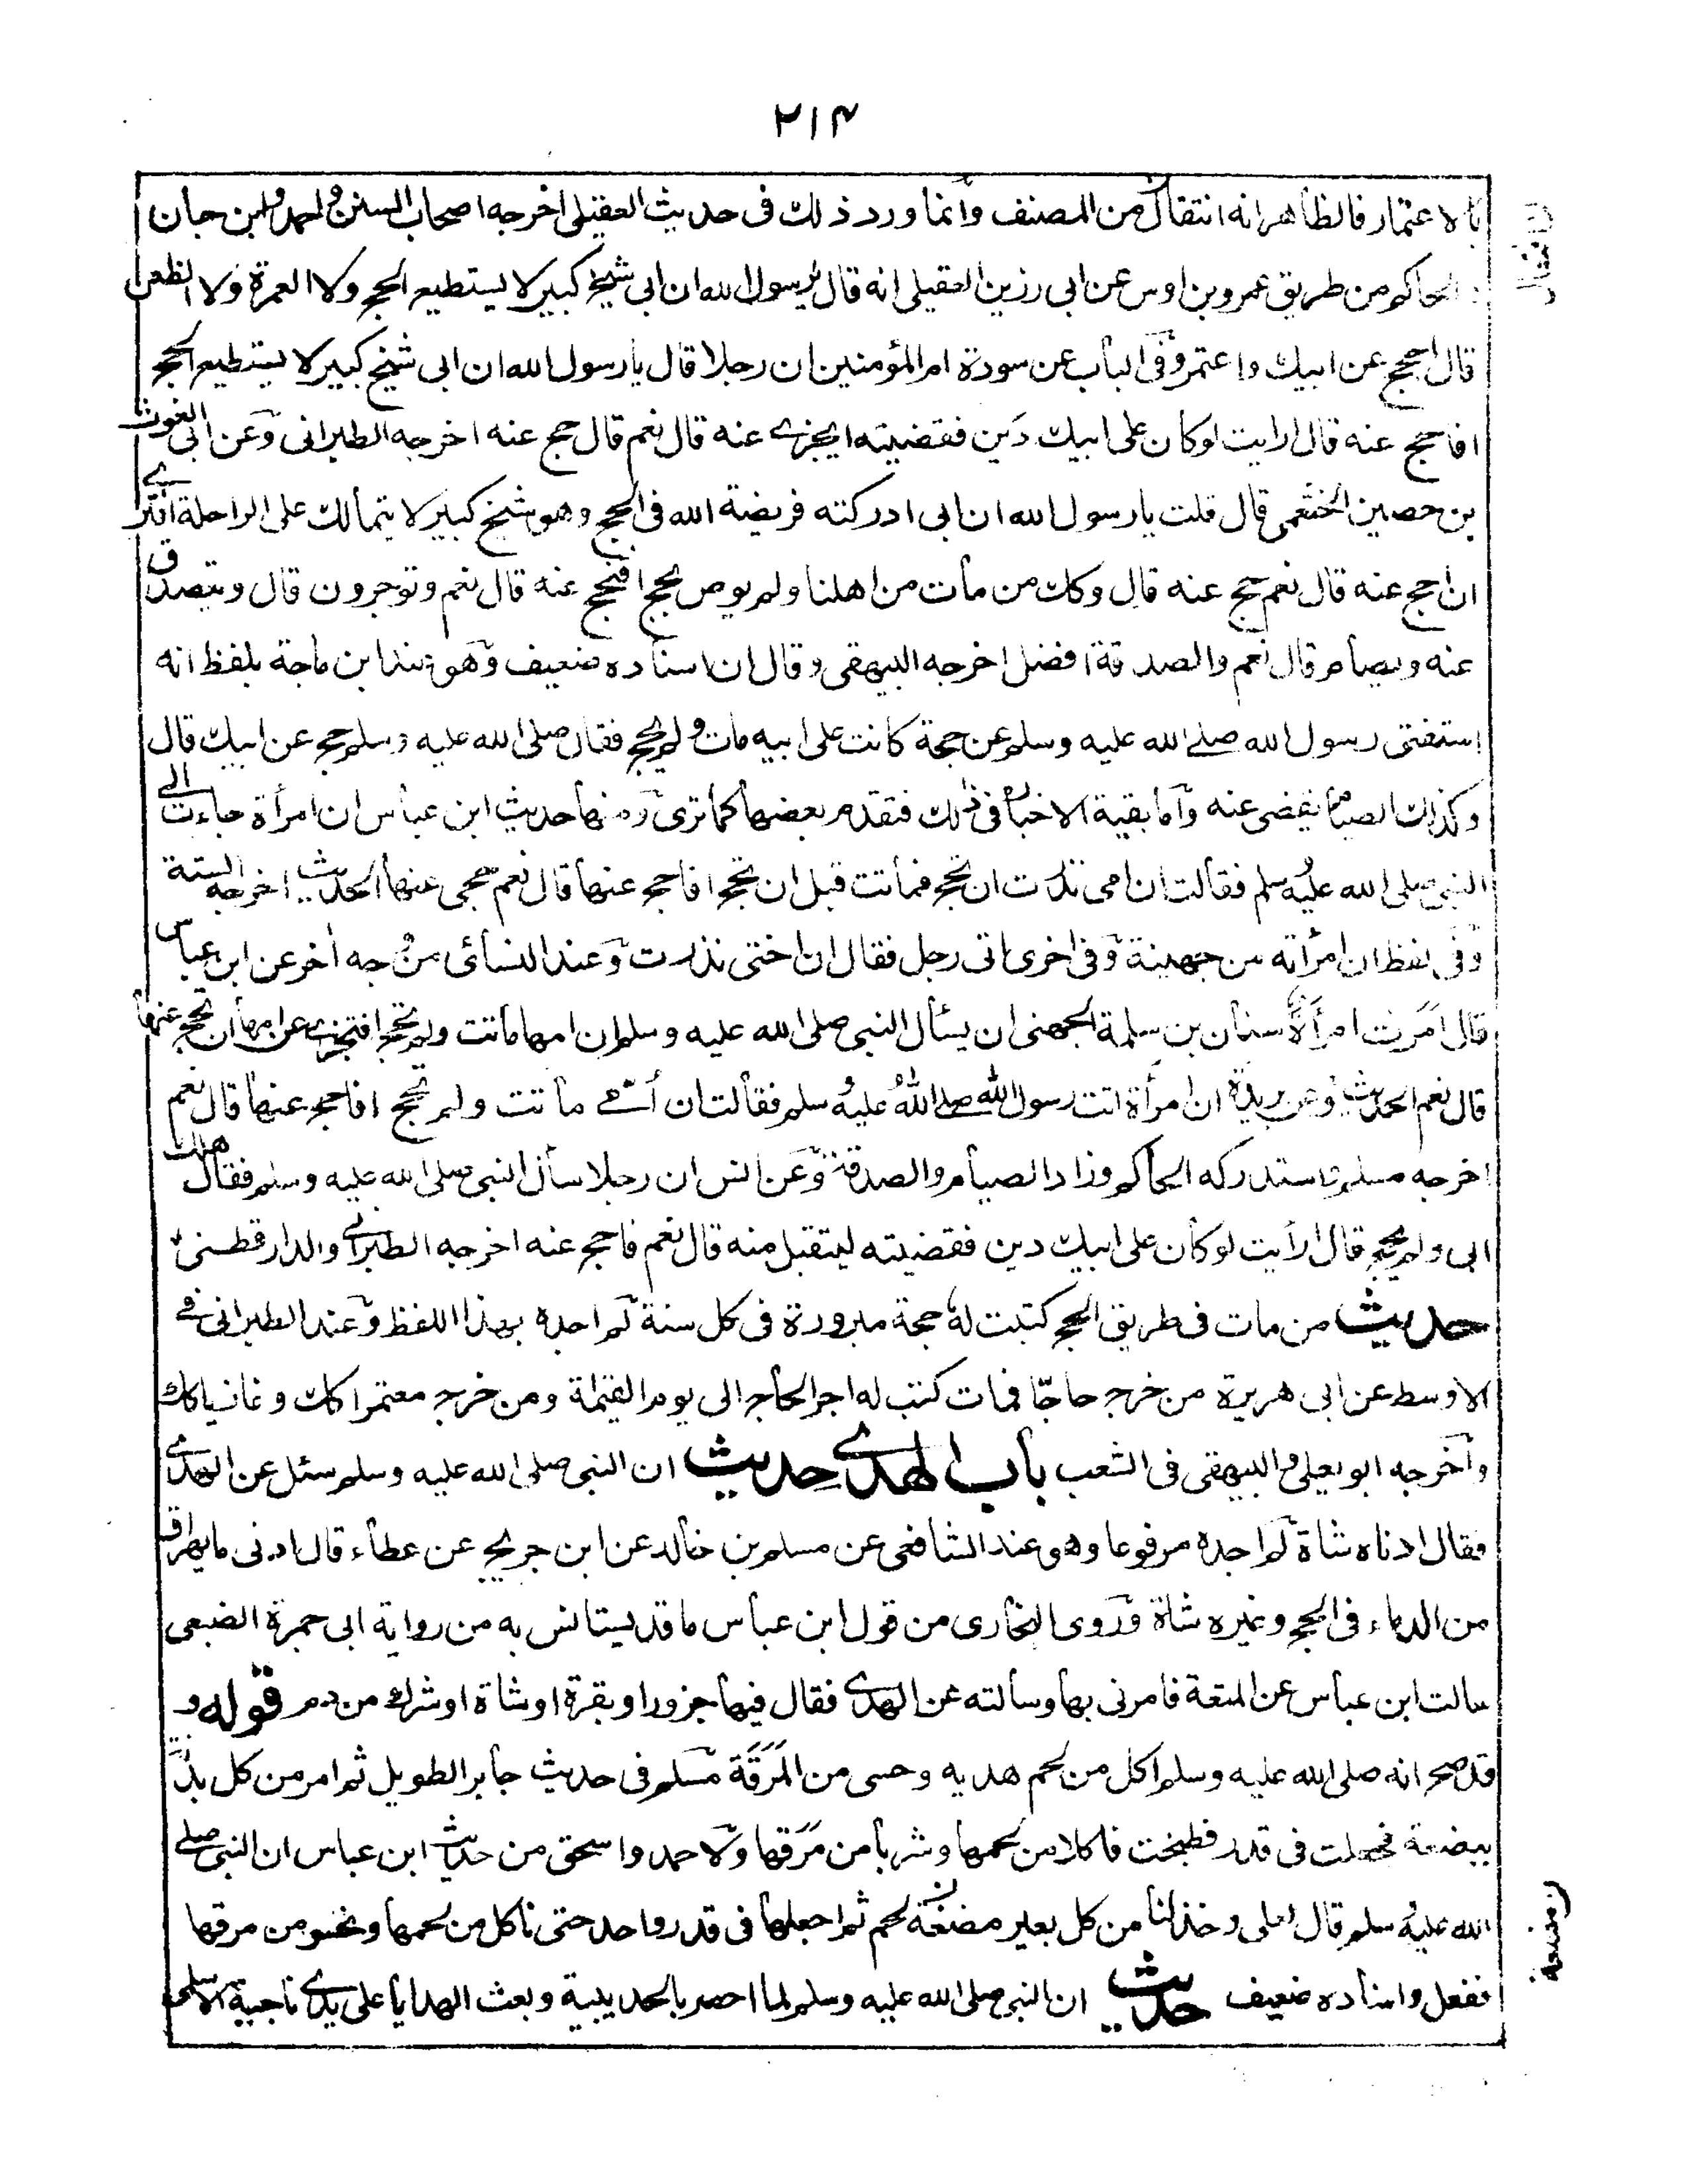 ٢١٤
بالاعتمار فالظاهر انه انتقال من المصنف وانما ورد ذلك فى حديث العقيلى اخرجه اصحاب السنن واحمد وابن حبان
والحاكم من طريق عمرو بن اوس عن ابى رزين العقيلى انه قال يا رسول الله ان ابى شيخ كبير لا يستطيع الحج ولا العمرة ولا الظعن
قال احجج عن ابيك واعتمر وفى الباب عن سودة ام المؤمنين ان رجلا قال يا رسول الله ان ابى شيخ كبير لا يستطيع الحج
افاحج عنه قال ارايت لو كان على ابيك دين فقضيته ايجزے عنه قال نعم قال حج عنه اخرجه الطبرانى وعن ابى الغوث
بن حصين الخثعمى قال قلت يا رسول الله ان ابى ادركته فريضة الله فى الحج وهو شيخ كبير لا يتمالك على الراحلة افترے
ان احج عنه قال نعم حج عنه قال وكك من مات من اهلنا ولم يوص بحج افنحج عنه قال نعم وتوجرون قال ويتصدق
عنه ويصام قال نعم والصدقة افضل اخرجه البيهقى وقال ان اسناده ضعيف وهو عند ابن ماجة بلفظ انه
استفتى رسول الله صلے الله عليه وسلم عن حجة كانت على ابيه مات ولم يحج فقال صلى الله عليه وسلم حج عن ابيك قال
وكذلك الصيام يقضى عنه واما بقية الاخبار فى ذلك فتقدم بعضها كما ترى ومنها حديث ابن عباس ان امرأة جاءت الے
النبى صلى الله عليه وسلم فقالت ان امى نذرت ان تحج فماتت قبل ان تحج افاحج عنها قال نعم حجى عنها الحديث اخرجه الستة
وفى لفظ ان امرأته من جهينة وفى اخرى اتى رجل فقال ان اختى نذرت وعند النسائى من وجه أخر عن ابن عباس
قال امرت امرأة سنان بن سلمة الجهنى ان يسأل النبى صلى الله عليه وسلم ان امها ماتت ولم تحج افتجزے عن امها ان تحج عنها
قال نعم الحديث وعن بريدة ان امرأة اتت رسول الله صلے الله عليه وسلم فقالت ان أمے ماتت ولم تحج افاحج عنها قال نعم
اخرجه مسلم واستدركه الحاكم وزاد الصيام والصدقة وعن انس ان رجلا سأل النبى صلى الله عليه وسلم فقال هلك
ابى ولم يحج قال ارأيت لو كان على ابيك دين فقضيته ليتقبل منه قال نعم فاحج عنه اخرجه الطبرانے والدارقطنى
حديث من مات فى طريق الحج كتبت له حجة مبرورة فى كل سنة لم اجده بهذا اللفظ وعند الطبرانى فے
الاوسط عن ابى هريرة من خرج حاجّا فمات كتب له اجر الحاج الى يوم القيمة ومن خرج معتمرا كك وغازيا كك
واخرجه ابو يعلى والبيهقى فى الشعب باب الهدے حديث ان النبى صلى الله عليه وسلم سئل عن الهدے
فقال ادناه شاة لم اجده مرفوعا وهو عند الشافعى عن مسلم بن خالد عن ابن جريج عن عطاء قال ادنى ما يهراق
من الدماء فى الحج وغيره شاة وروى البخارى من قول ابن عباس ما قد يستانس به من رواية ابى جمرة الضبعى
سالت ابن عباس عن المتعة فامرنى بها وسالته عن الهدے فقال فيها جزور او بقرة او شاة او شرك من دم قوله و
قد صح انه صلى الله عليه وسلم اكل من لحم هديه وحسى من المَرَقَة مسلم فى حديث جابر الطويل ثم امر من كل بدنة
ببضعة فجعلت فى قدر فطبخت فاكلا من لحمها وشربا من مَرَقها ولاحمد واسحق من حديث ابن عباس ان النبى صلے
الله عليه وسلم قال لعلى وخذ لنا من كل بعير مضغة لحم ثم اجعلها فى قدر واحد حتى ناكل من لحمها ونحسو من مرقها
ففعل واسناده ضعيف حديث ان النبى صلى الله عليه وسلم لما احصر بالحديبية وبعث الهدايا على يدے ناجية الاسلمى